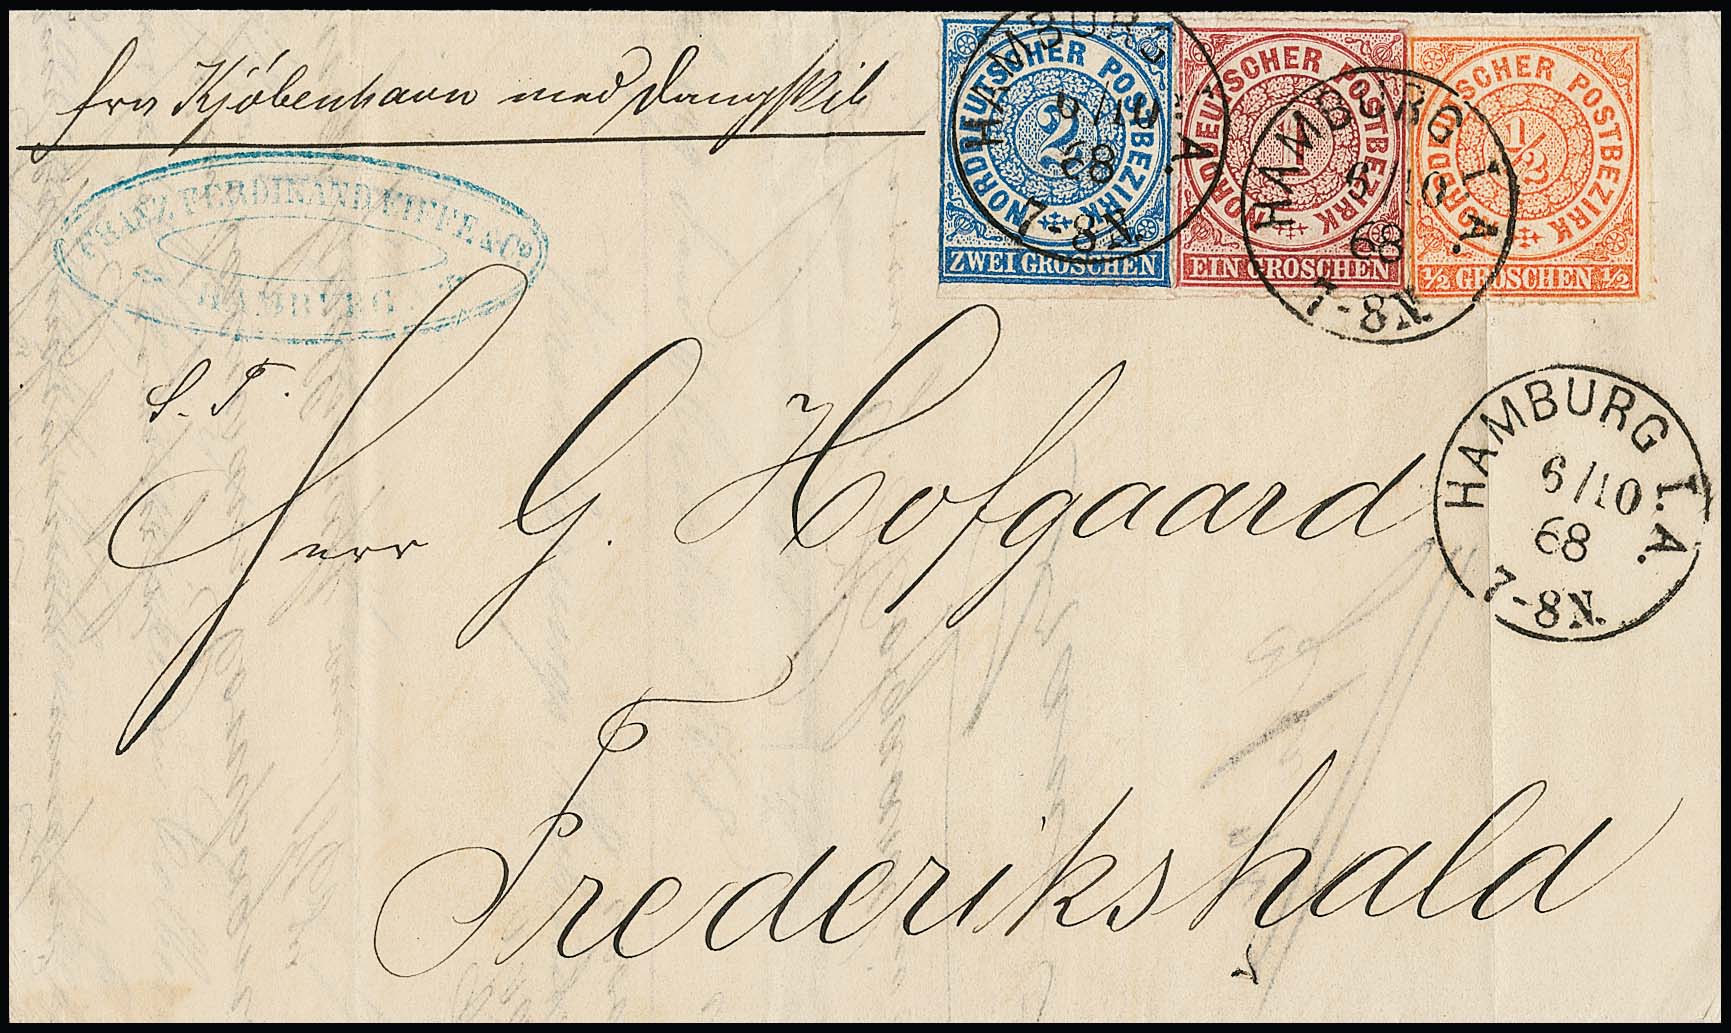 fra Kjöbenhavn med Dampskib
FRANZ FERDINAND EIFFE & Co
HAMBURG
NORDDEUTSCHER POSTBEZIRK
2
ZWEI GROSCHEN
NORDDEUTSCHER POSTBEZIRK
1
EIN GROSCHEN
NORDDEUTSCHER POSTBEZIRK
1/2
1/2 GROSCHEN 1/2
HAMBURG I.A.
6/10
68
7-8N.
HAMBURG I.A.
6/10
68
7-8N.
HAMBURG I.A.
6/10
68
7-8N.
S. T.
Herr G. Hofgaard
Frederikshald